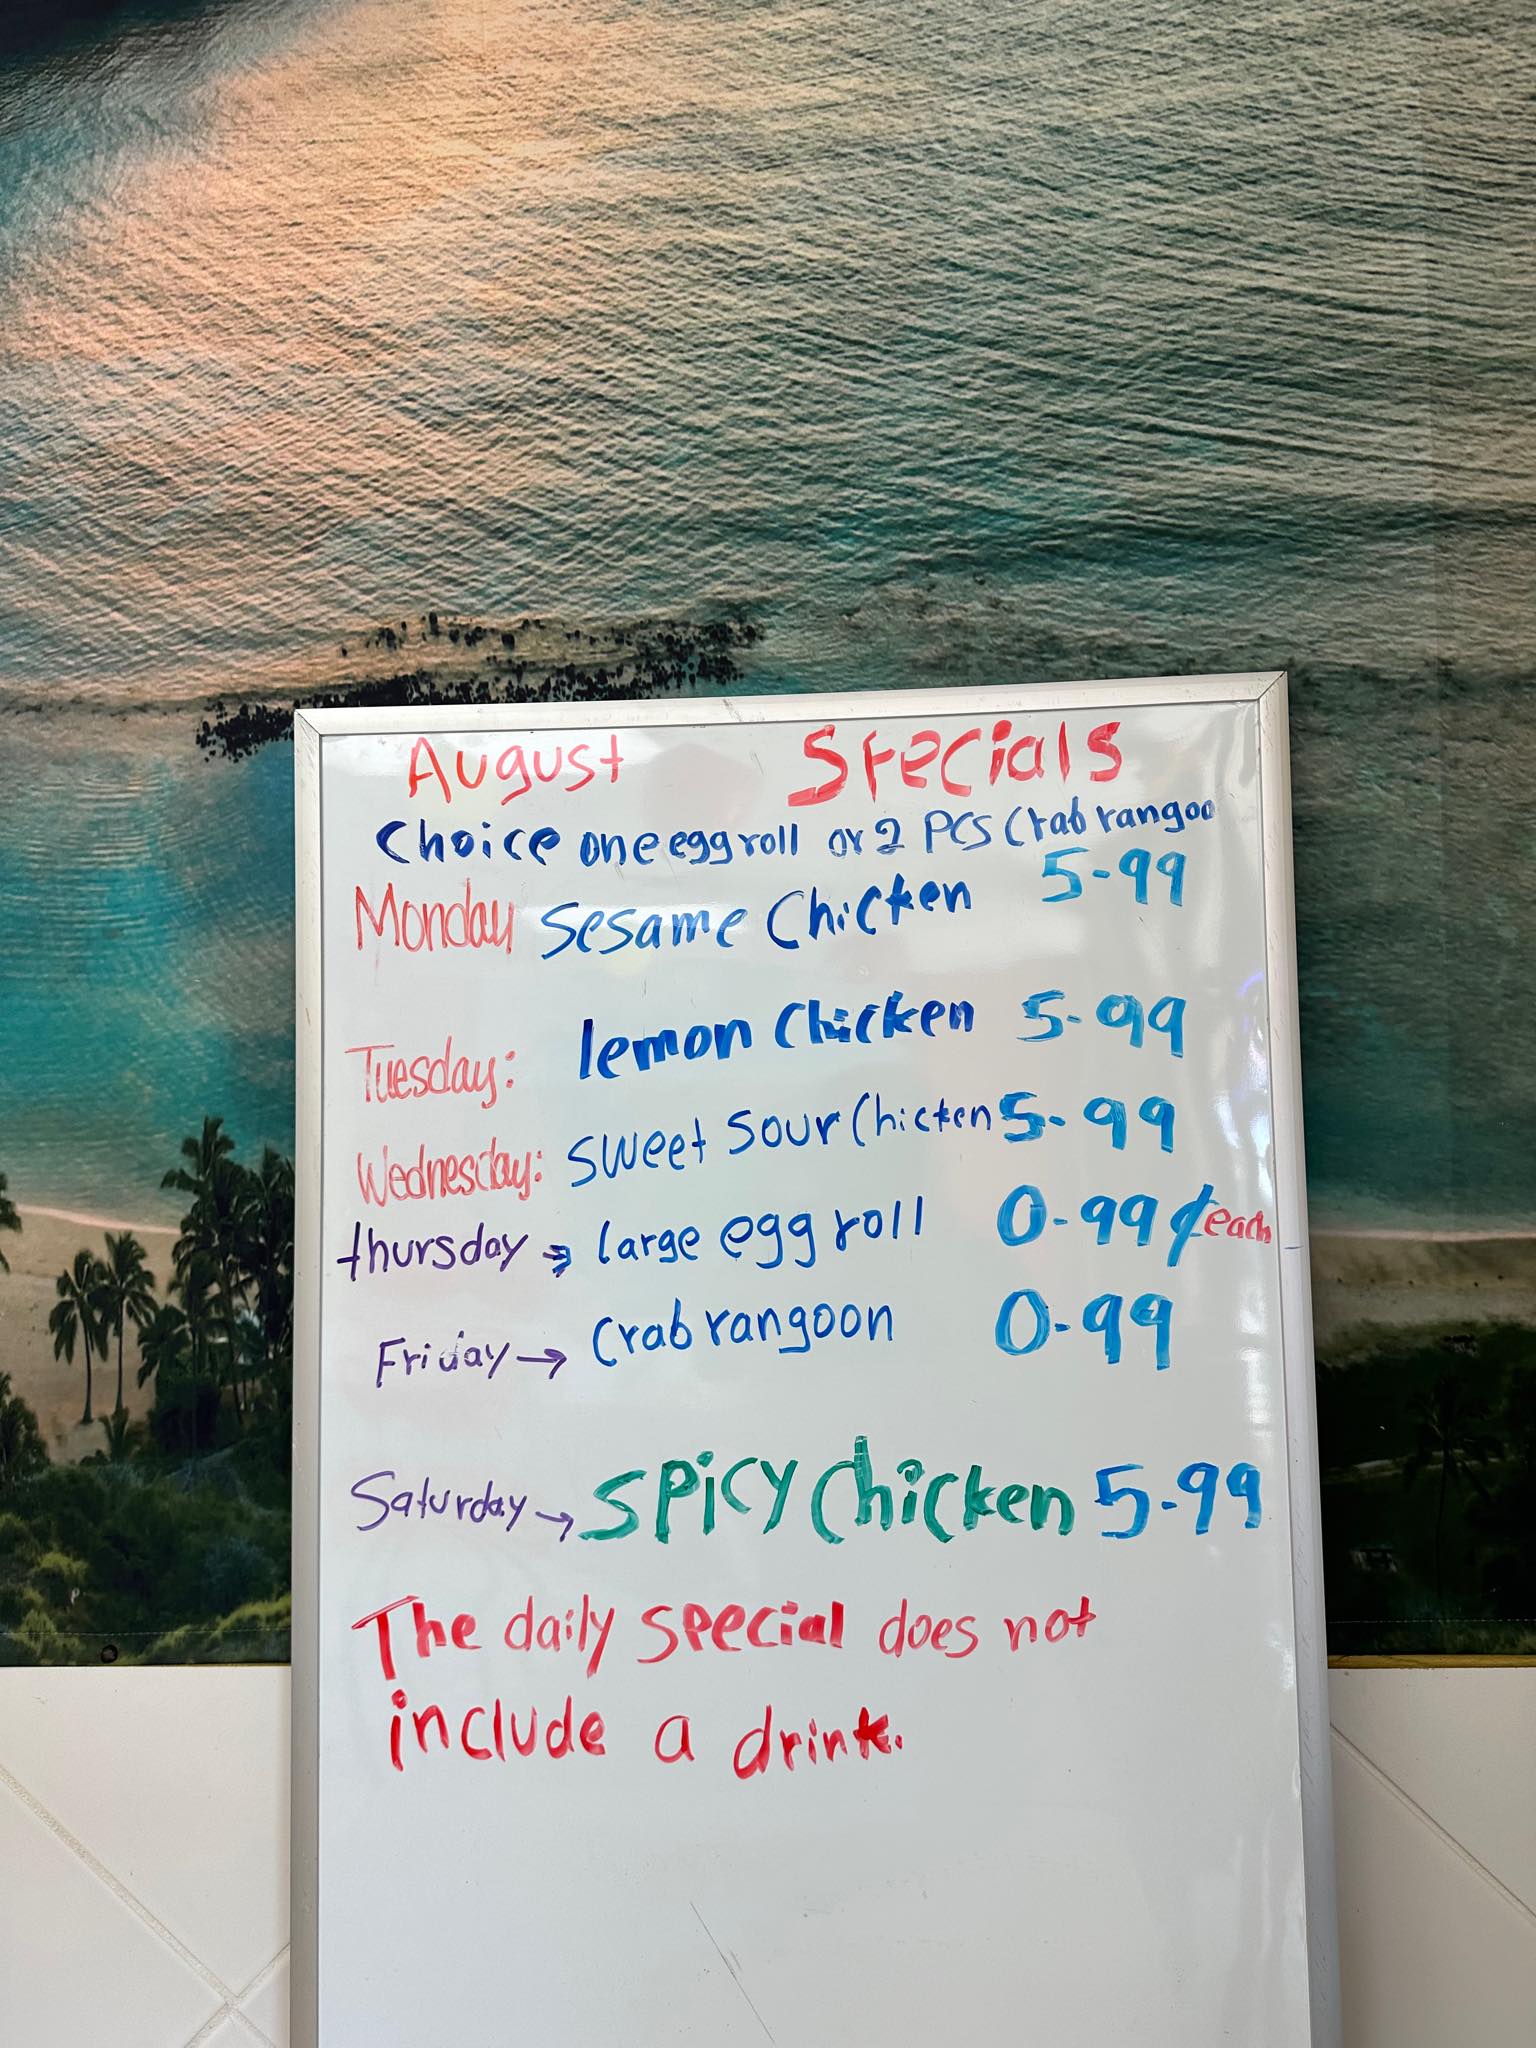 August Specials
Choice one egg roll or 2 PCS Crab rangoo
Monday Sesame Chicken 5-99
Tuesday: lemon Chicken 5-99
Wednesday: Sweet Sour Chicken 5-99
thursday → large egg roll 0-99 ¢ each
Friday → Crab rangoon 0-99
Saturday → SPicy Chicken 5-99
The daily special does not
include a drink.